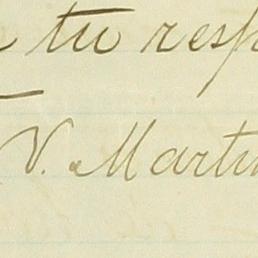 tu resp
V. Martin